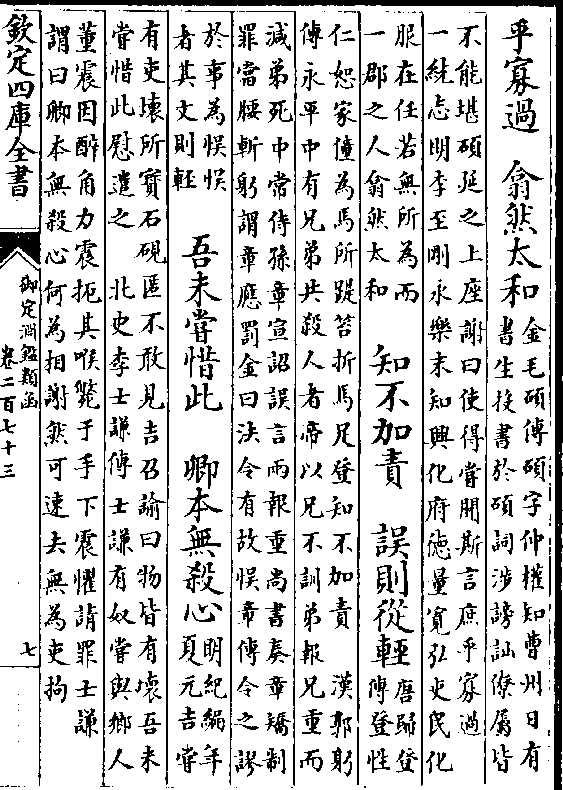 乎寡過　翕然太和
金毛碩傳碩字仲權知曹州日有
書生投書於碩詞涉謗訕僚屬皆
不能堪碩延之上座謝曰使得嘗聞斯言庶乎寡過
一統志明李至剛永樂末知興化府德量寛弘吏民化
服在任若無所為而
一郡之人翕然太和
知不加責　誤則從輕
唐歸登
傳登性
仁恕家僮為馬所踶笞折馬足登知不加責　漢郭躬
傳永平中有兄弟共殺人者帝以兄不訓弟報兄重而
減弟死中常侍孫章宣詔誤言兩報重尚書奏章矯制
罪當腰斬躬謂章應罰金曰法令有故悞章傳令之謬
於事為悞悞
者其文則輕
吾未嘗惜此　卿本無殺心
明紀編年
夏元吉嘗
有吏壞所寳石硯匿不敢見吉召諭曰物皆有壞吾未
嘗惜此慰遣之　北史李士謙傳士謙有奴嘗與鄉人
董震因醉角力震扼其喉斃于手下震懼請罪士謙
謂曰卿本無殺心何為相謝然可速去無為吏拘
欽定四庫全書
御定淵鑑類函
卷二百七十三
七